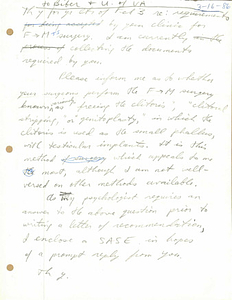 to Biber & U. of VA
2-16-86
Thx for yr info re: requirements
by your clinic for
F→M surgery. I am currently
collecting the documents
required by you.
Please inform me as to whether
your surgeons perform the F→M surgery
known as "freeing the clitoris", "clitoral
stripping," or "genitoplasty," in which the
clitoris is used as the small phallus,
with testicular implants. It is this
method of surgery which appeals to me
the most, although I am not well-
versed on other methods available.
My psychologist requires an
answer to the above question prior to
writing a letter of recommendation.
I enclose a SASE, in hopes
of a prompt reply from you.
Th y.